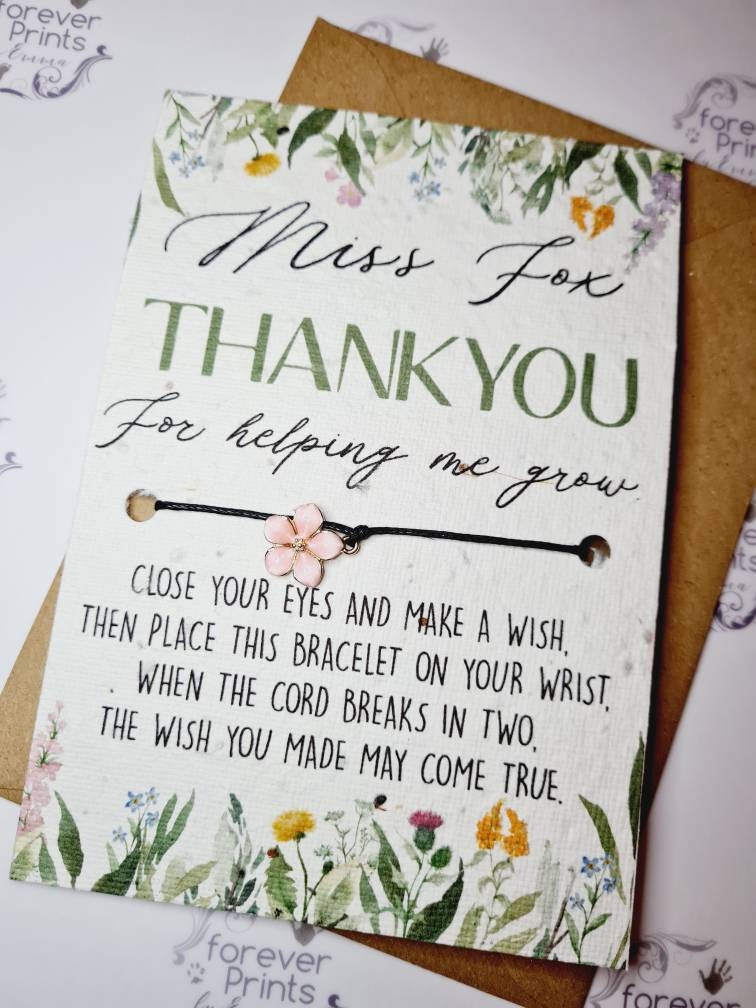 forever
Prints
by Emma
Miss Fox
THANKYOU
For helping me grow
CLOSE YOUR EYES AND MAKE A WISH,
THEN PLACE THIS BRACELET ON YOUR WRIST,
WHEN THE CORD BREAKS IN TWO,
THE WISH YOU MADE MAY COME TRUE.
forever
Prints